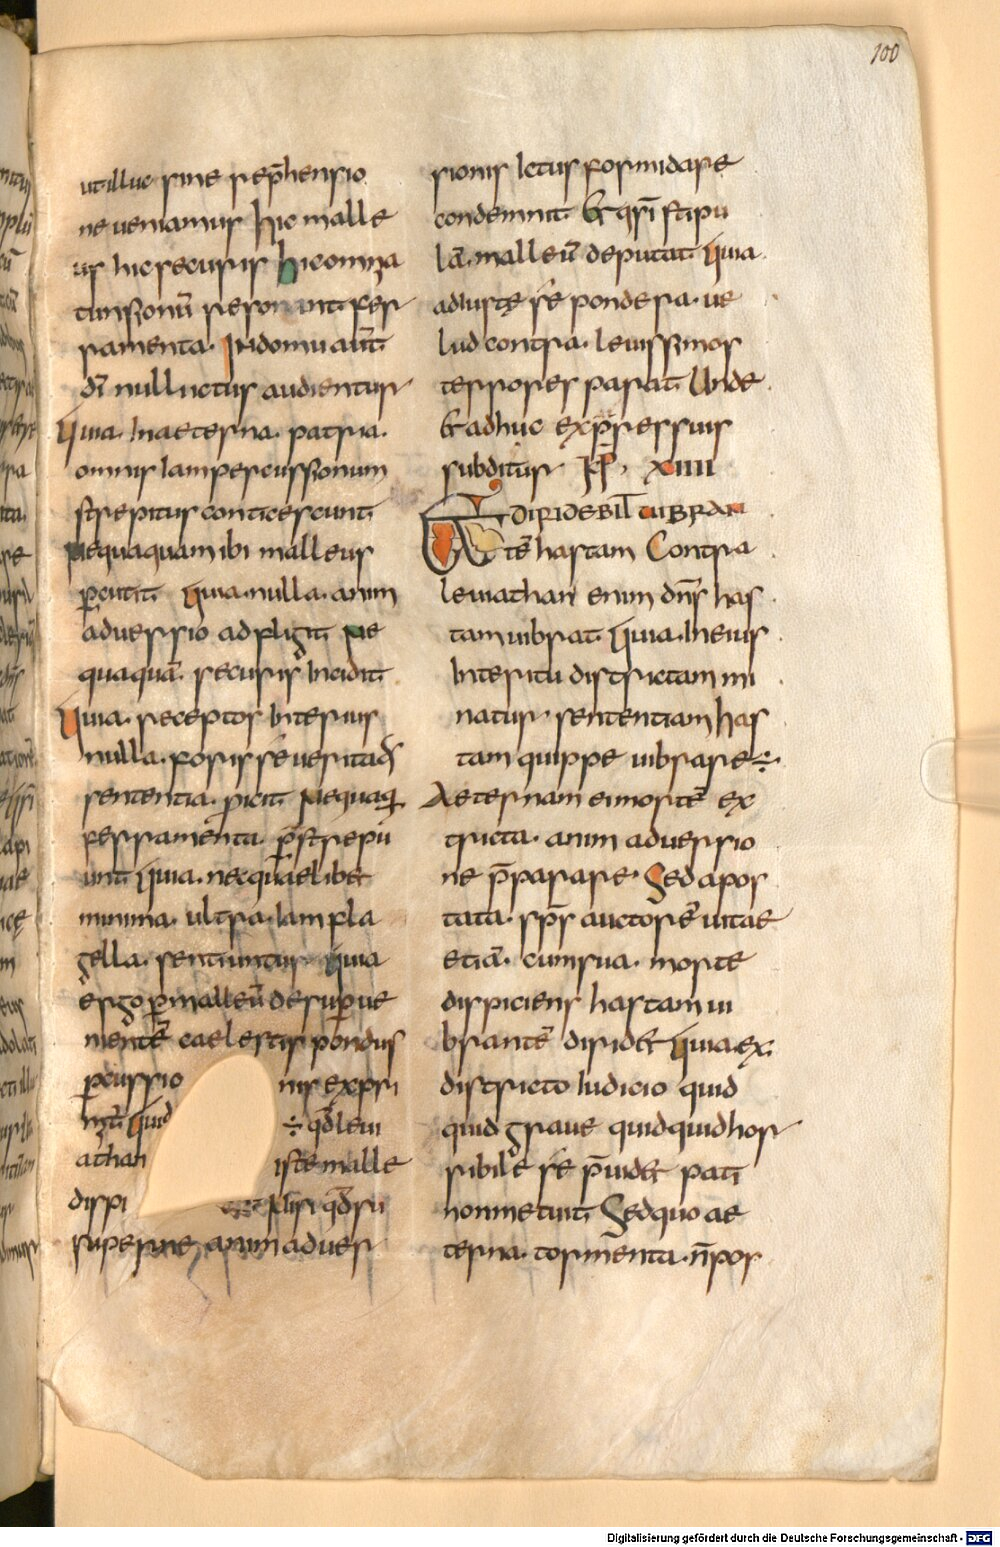 100
ut illuc sine rep̄hensio
ne ueniamus hic malle
us hic securis hic omnia
tunsionū resonant fer
ramenta. In domu aūt
dī nulli ictus audientur
Quia. In aeterna. patria.
omnis iam percussionum
strepitus conticescunt
Nequaquam ibi malleus
ꝑcutit quia. nulla. anim
aduersio adfligit Ne
quaquā. securis incidit
Quia. receptos interius
nulla. foris seueritatis
sententia. ꝓicit Nequaq̄
ferramenta. p̄strepu
unt quia. nec quaelibet
minima. ultra. iam fla
gella. sentiuntur quia
ergo ꝑ malleū desuꝑ ue
nientē caelestis pondus
ꝑcussionis expri
mit quid ÷ qđ leui
athan iste malle
dispi nisi qđ su
perne animaduer
sionis ictus formidare
condemnit & q̄si stipu
lā. malleū deputat quia.
ad iustę irę pondera. ue
lud contra. leuissimos
terrores parat Unde
& adhuc exp̄ressius
subditur KP. XIIII
ET DIRIDEBIT UIBRAN
tē hastam Contra
leuiathan enim dn̄s has
tam uibrat quia. In eius
interitu districtam mi
natur sententiam has
tam quippe uibrare ÷
Aeternam ei mortē ex
tricta. animaduersio
ne p̄parare. Sed apos
tata. sp̄s auctorē uitae
etiā. cum sua. morte
dispiciens hastam ui
brantē dirid& quia ex
districto iudicio quid
quid graue quidquid hor
ribile se p̄uid& pati
non metuit Sed quo ae
terna. tormenta. n̄ pos
Digitalisierung gefördert durch die Deutsche Forschungsgemeinschaft - DFG